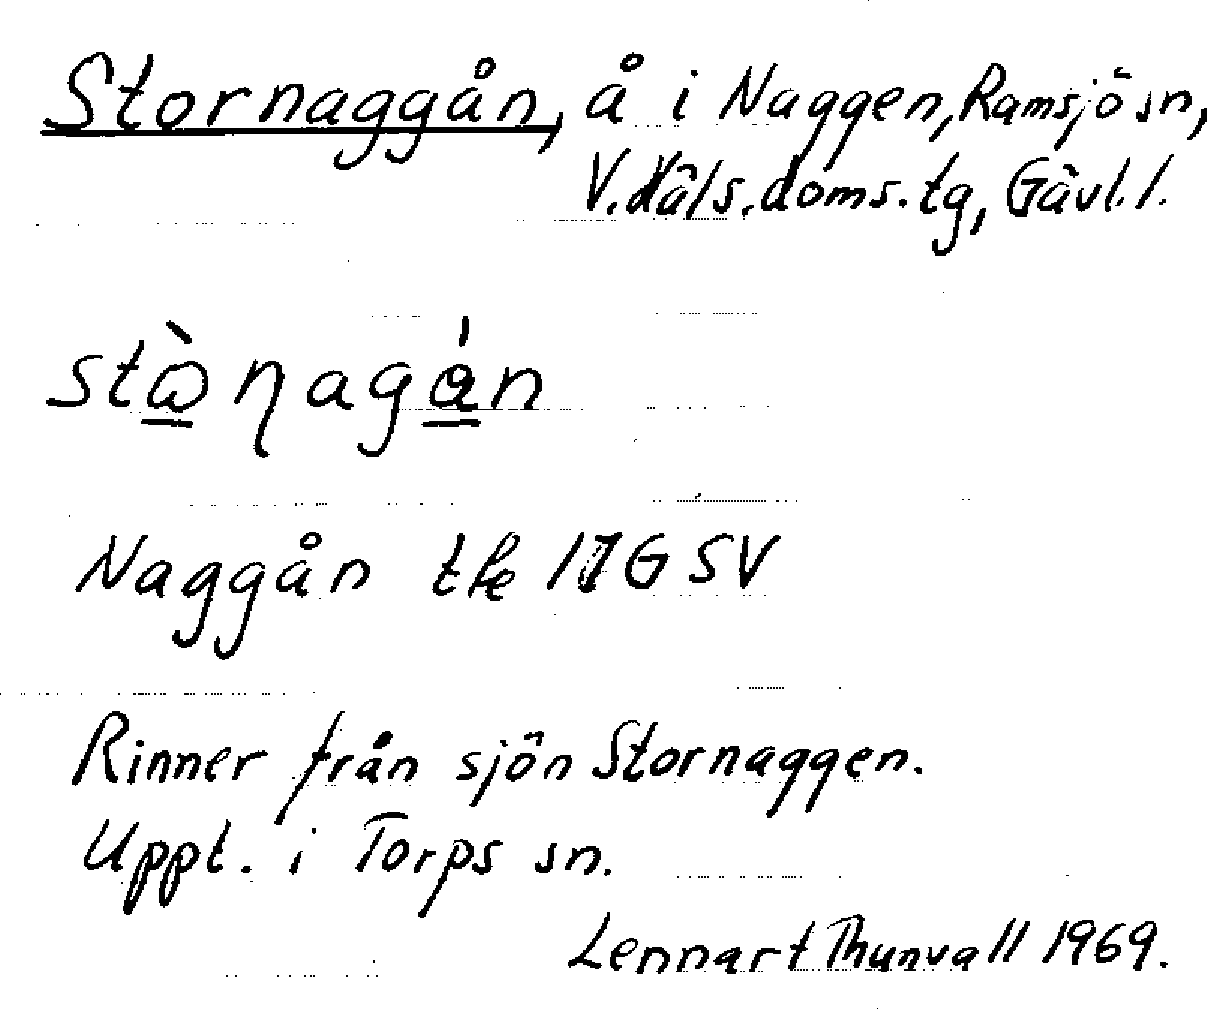 Stornaggån, å i Naggen, Ramsjö sn,
V. Häls. doms. tg, Gävl. l.
stɷ̀ ɳagán
Naggån tk 17 G SV
Rinner från sjön Stornaggen.
Uppt. i Torps sn.
Lennart Thunvall 1969.